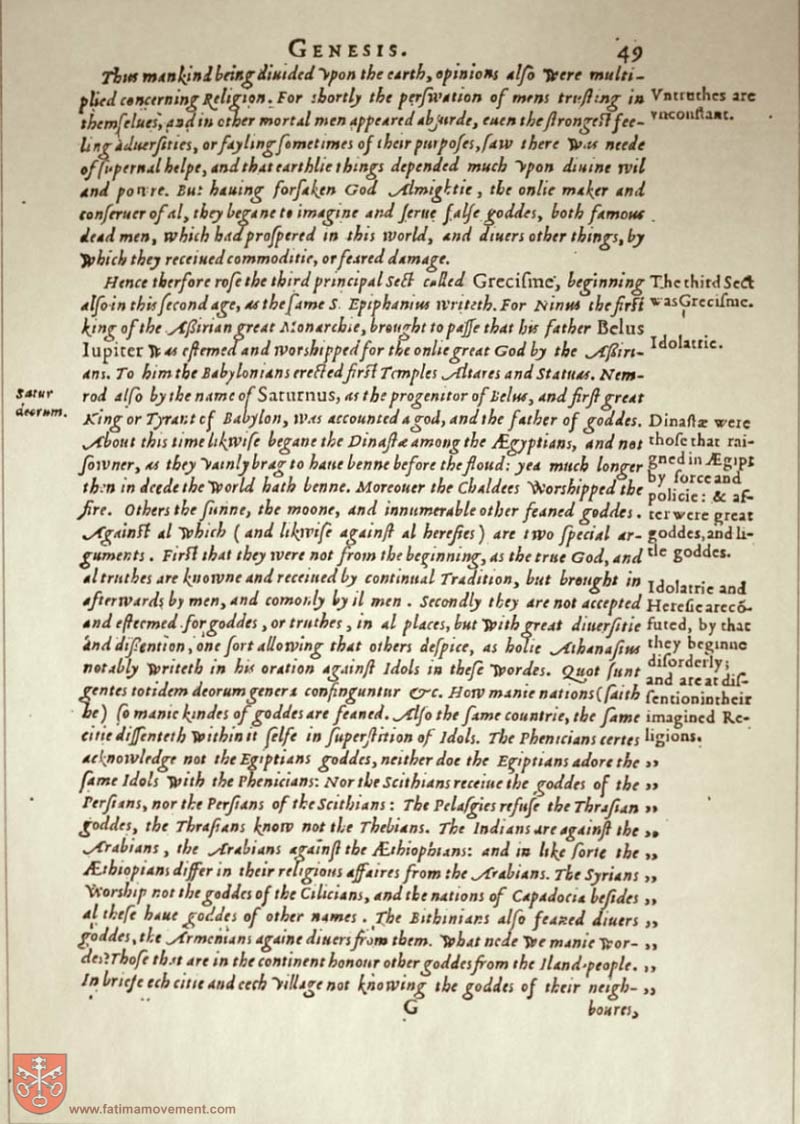 GENESIS. 49
Thus mankind being diuided vpon the earth, opinions alſo were multi-
plied concerning Religion. For ſhortly the perſwation of mens truſting in
themſelues, and in other mortal men appeared abſurde, euen the ſtrongeſt fee-
ling aduerſities, or fayling ſometimes of their purpoſes, ſaw there was neede
of ſupernal helpe, and that earthlie things depended much vpon diuine wil
and powre. But hauing forſaken God Almightie, the onlie maker and
conſeruer of al, they begane to imagine and ſerue falſe goddes, both famous
dead men, which had proſpered in this world, and diuers other things, by
which they receiued commoditie, or feared damage.
Vntruthes are
vnconſtant.
Hence therfore roſe the third principal Sect called Greciſme, beginning
alſo in this ſecond age, as the ſame S. Epiphanius writeth. For Ninus the firſt
king of the Aßirian great Monarchie, brought to paſſe that his father Belus
Iupiter was eſtemed and worshipped for the onlie great God by the Aßiri-
ans. To him the Babylonians erected firſt Temples Altares and Statuas. Nem-
rod alſo by the name of Saturnus, as the progenitor of Belus, and firſt great
King or Tyrant of Babylon, was accounted a god, and the father of goddes.
About this time likwiſe begane the Dinaſtæ among the Ægyptians, and not
ſowner, as they vainly brag to haue benne before the floud: yea much longer
then in deede the world hath benne. Moreouer the Chaldees worshipped the
fire. Others the ſunne, the moone, and innumerable other feaned goddes.
Againſt al which (and likwiſe againſt al hereſies) are two ſpecial ar-
guments. Firſt that they were not from the beginning, as the true God, and
al truthes are knowne and receiued by continual Tradition, but brought in
afterwards by men, and comonly by il men. Secondly they are not accepted
and eſteemed for goddes, or truthes, in al places, but with great diuerſitie
and diſſention, one ſort allowing that others deſpice, as holie Athanaſius
notably writeth in his oration againſt Idols in theſe wordes. Quot ſunt
gentes totidem deorum genera confinguntur &c. How manie nations (ſaith
he) ſo manie kindes of goddes are feaned. Alſo the ſame countrie, the ſame
citie diſſenteth within it ſelfe in ſuperſtition of Idols. The Phenicians certes
acknowledge not the Egiptians goddes, neither doe the Egiptians adore the ,,
ſame Idols with the Phenicians: Nor the Scithians receiue the goddes of the ,,
Perſians, nor the Perſians of the Scithians: The Pelaſgies refuſe the Thraſian ,,
goddes, the Thraſians know not the Thebians. The Indians are againſt the ,,
Arabians, the Arabians againſt the Æthiophians: and in like ſorte the ,,
Æthiopians differ in their religious affaires from the Arabians. The Syrians ,,
worship not the goddes of the Cilicians, and the nations of Capadocia beſides ,,
al theſe haue goddes of other names. The Bithinians alſo feaned diuers ,,
goddes, the Armenians againe diuers from them. What nede we manie wor- ,,
des? Thoſe that are in the continent honour other goddes from the Iland-people. ,,
In briefe ech citie and eech village not knowing the goddes of their neigh- ,,
G boures,
Satur
deorum.
The third Sect
was Greciſme.
Idolatrie.
Dinaſtæ were
thoſe that rai-
gned in Ægipt
by force and
policie: & af-
ter were great
goddes, and li-
tle goddes.
Idolatrie and
Hereſie are cõ-
futed, by that
they beginne
diſorderly;
and are at diſ-
ſention in their
imagined Re-
ligions.
www.fatimamovement.com